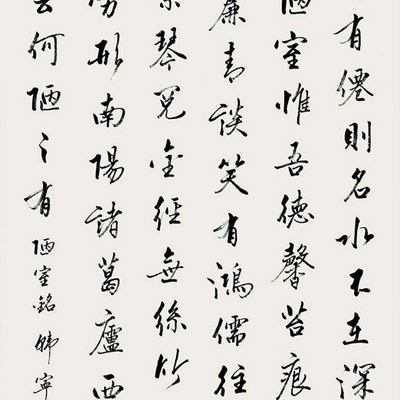 有僊則名水不在深
陋室惟吾德馨苔痕
簾青談笑有鴻儒往
琴閱金經無絲竹
勞形南陽諸葛廬西
云何陋之有
陋室銘 韩寧